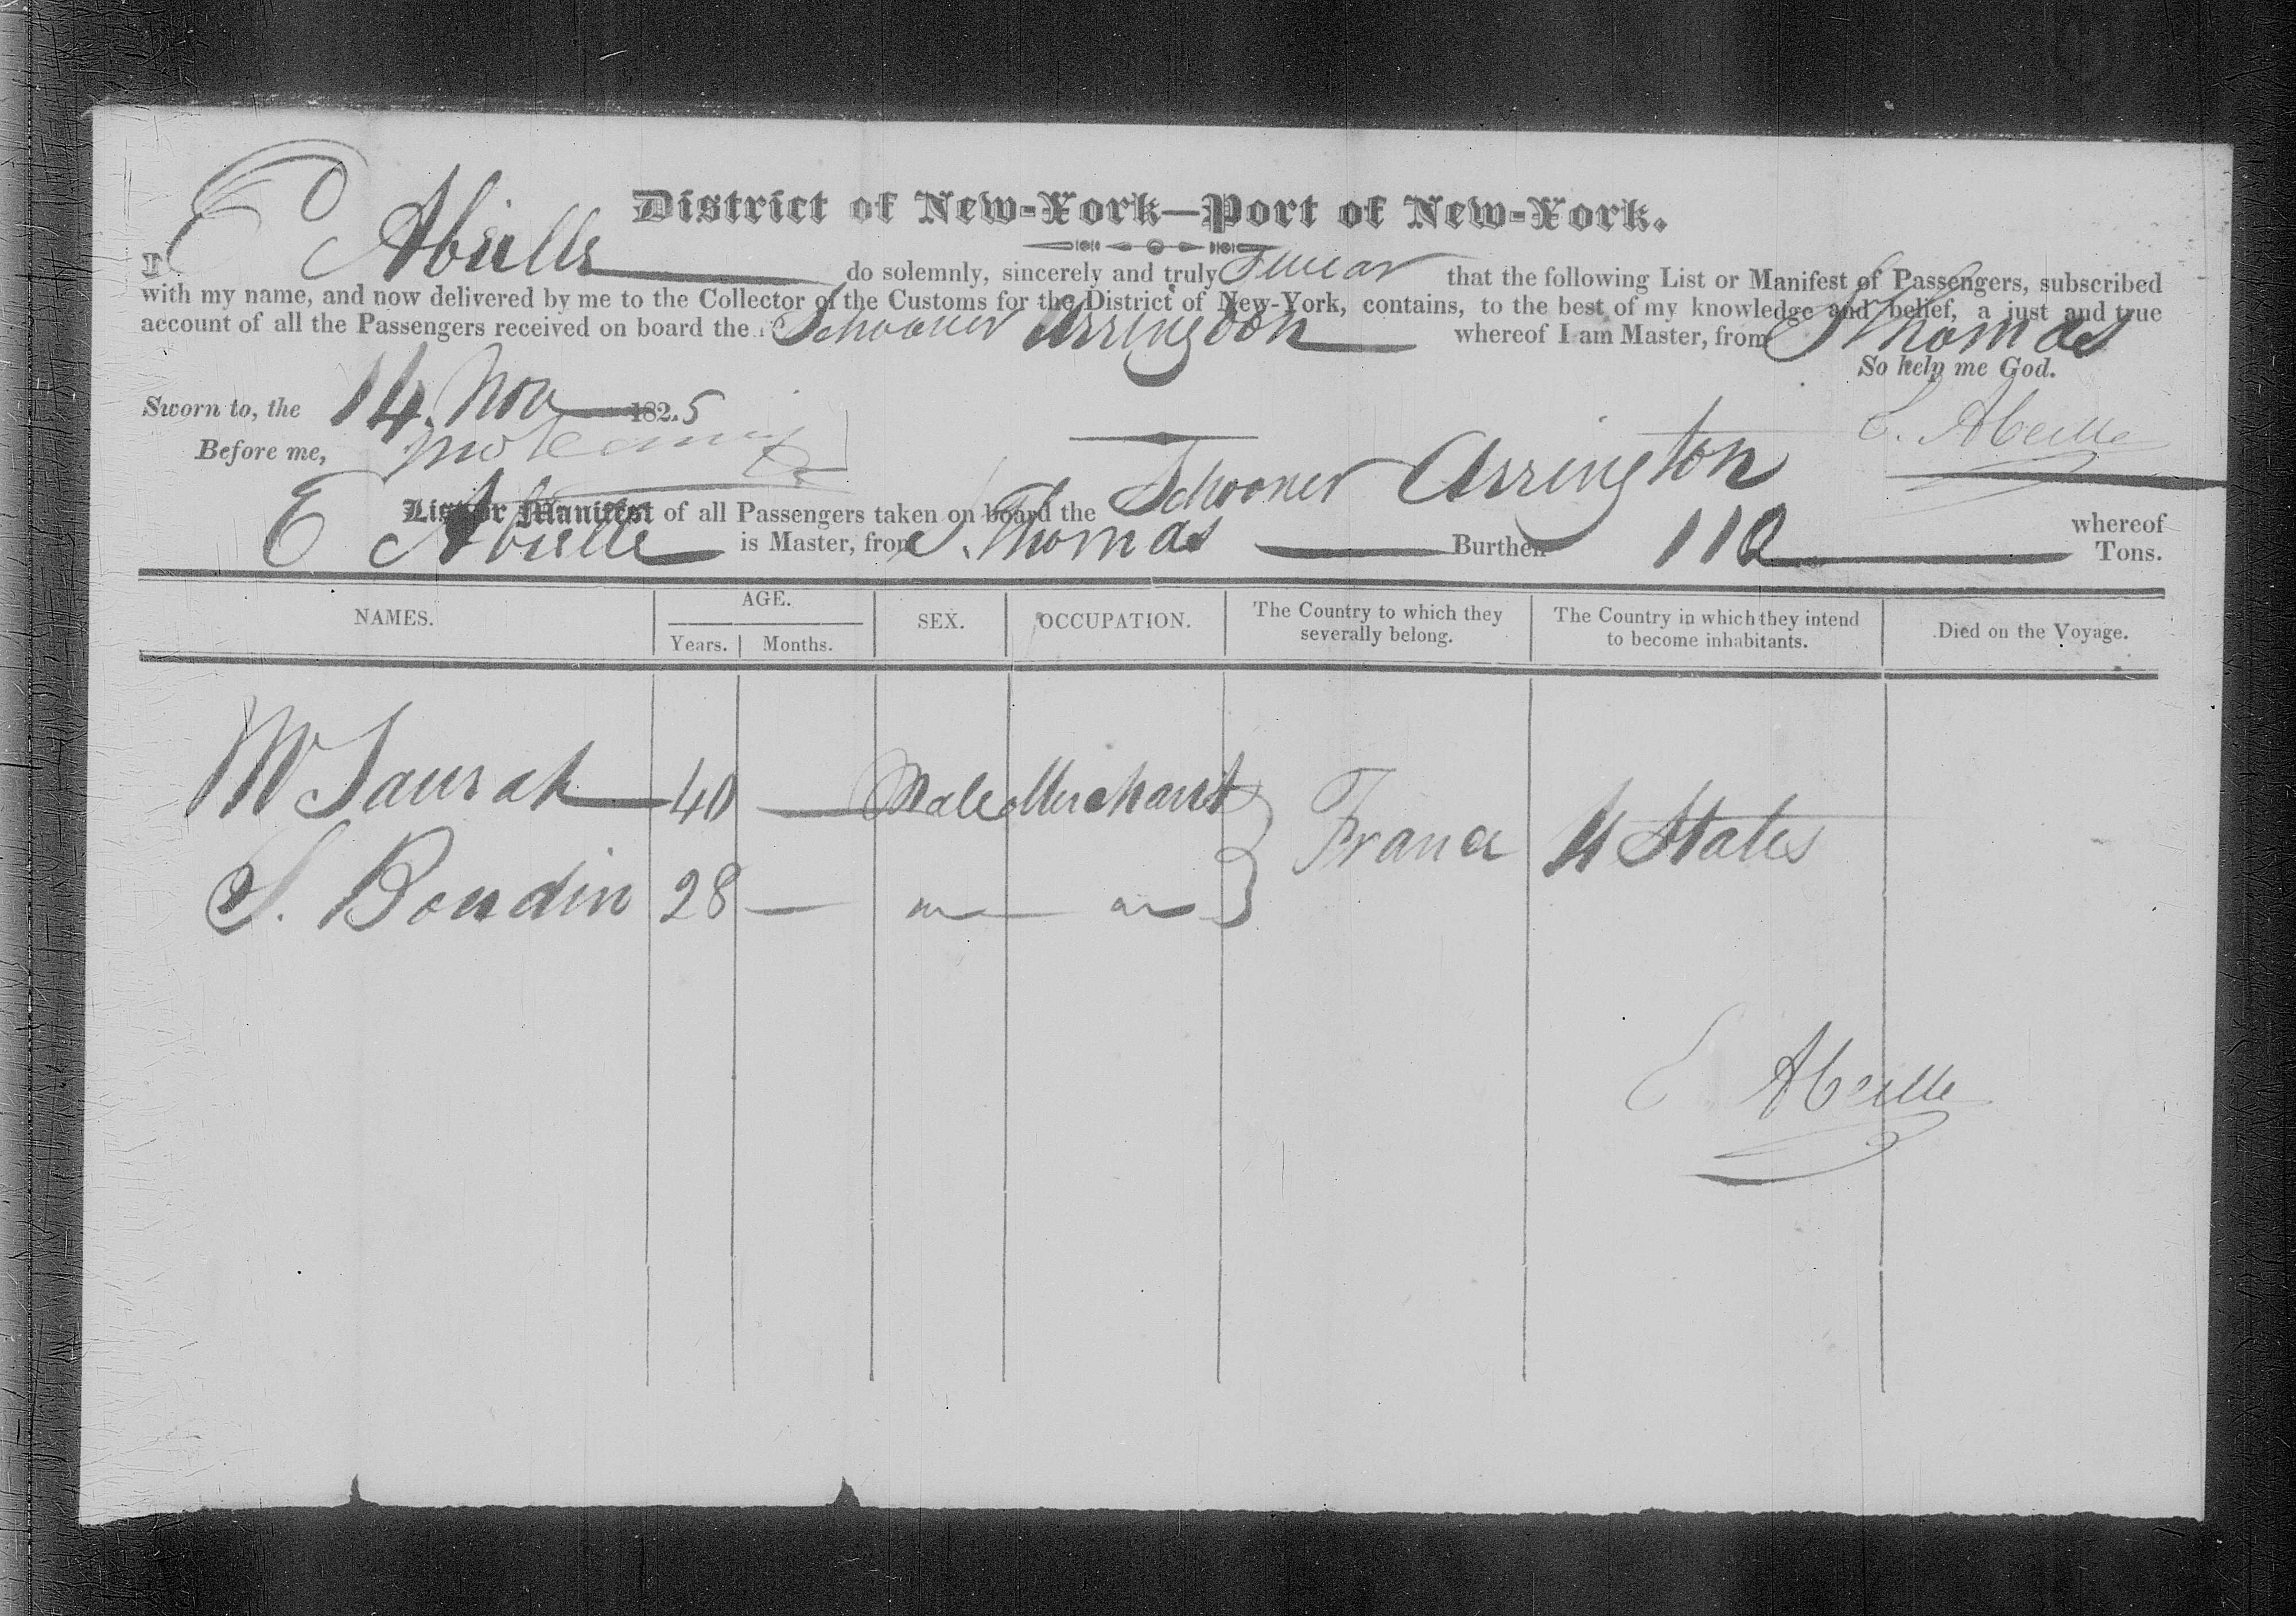 District of New-York—Port of New-York.
I E Abeille do solemnly, sincerely and truly Swear that the following List or Manifest of Passengers, subscribed
with my name, and now delivered by me to the Collector of the Customs for the District of New-York, contains, to the best of my knowledge and belief, a just and true
account of all the Passengers received on board the Schooner Arrington whereof I am Master, from S Thomas
So help me God.
Sworn to, the 14 Nov 1825
E. Abeille
Before me,
List or Manifest of all Passengers taken on board the Schooner Arrington whereof
E Abeille is Master, from S. Thomas Burthen 110 Tons.
NAMES. AGE. SEX. OCCUPATION. The Country to which they severally belong. The Country in which they intend to become inhabitants. Died on the Voyage.
Years. Months.
40 — Male Merchant
France U States
S. Boudin 28 —
E Abeille